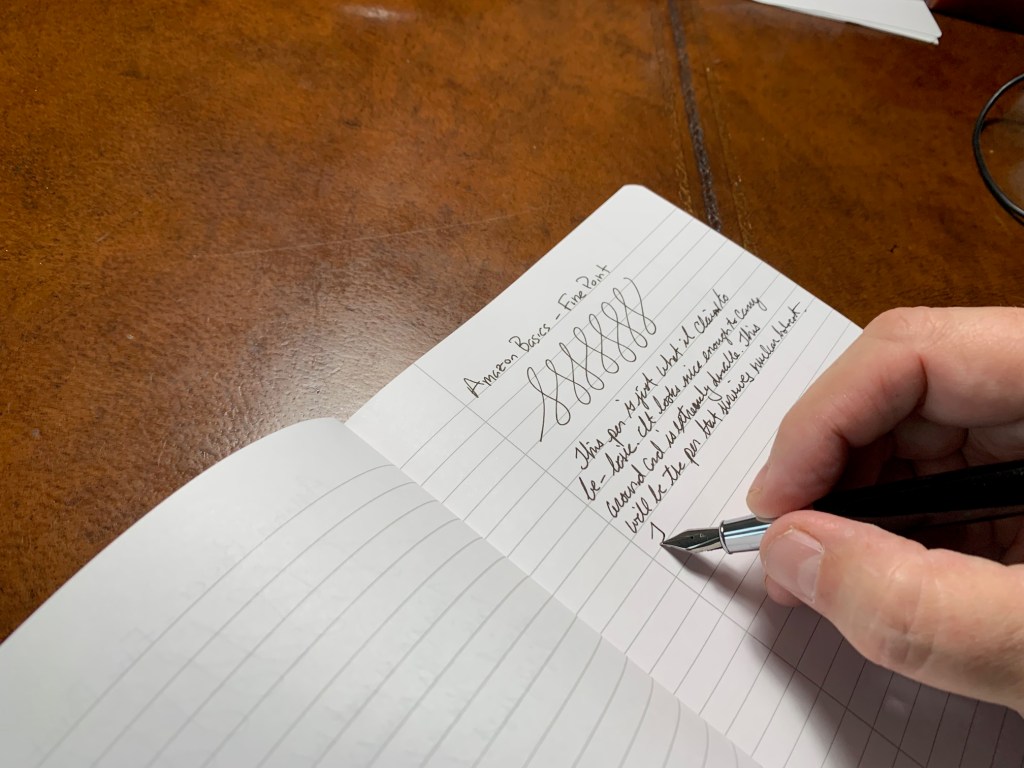 Amazon Basics - Fine Point
This pen is just what it claims to
be - basic. It looks nice enough to carry
around and is extremely durable. This
will be the pen that survives nuclear